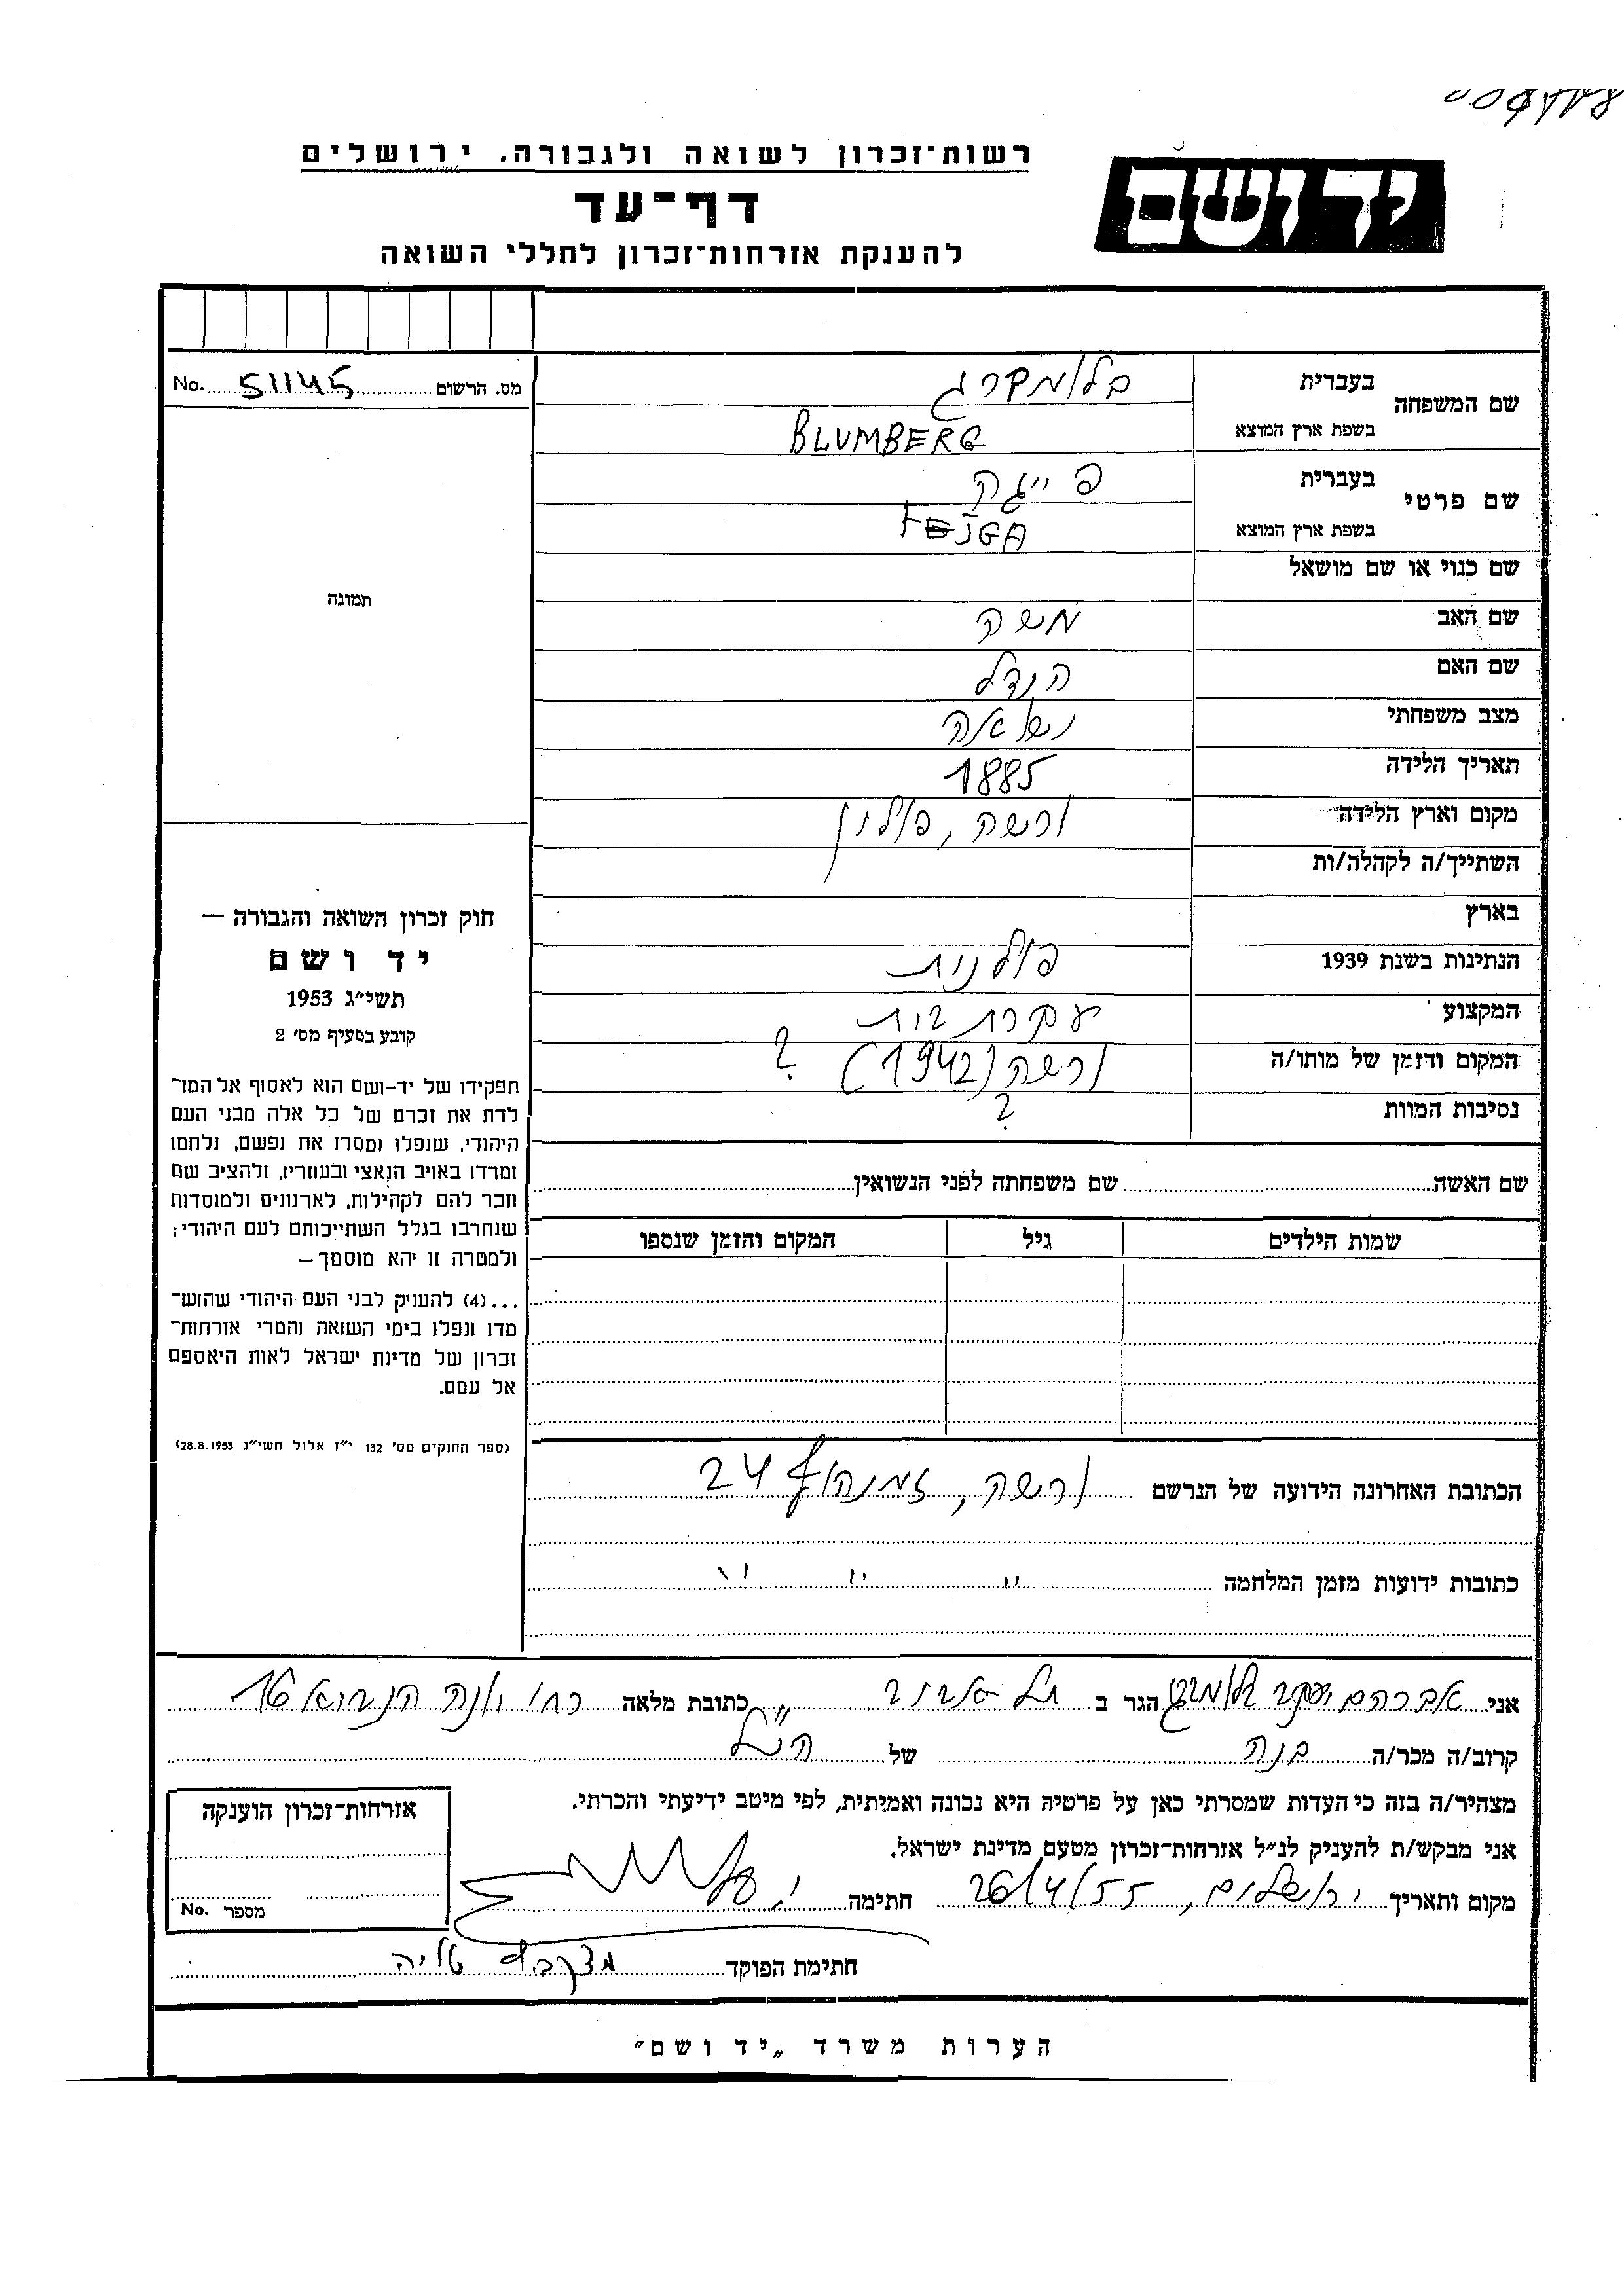 רשות־זכרון לשואה ולגבורה. ירושלים
יד ושם
דף־עד
להענקת אזרחות־זכרון לחללי השואה
מס. הרשום 51145 No.
שם המשפחה
בעברית בלומברג
בשפת ארץ המוצא BLUMBERG
שם פרטי
בעברית פייגה
בשפת ארץ המוצא FEJGA
שם כנוי או שם מושאל
שם האב משה
שם האם הנדל
מצב משפחתי נשואה
תאריך הלידה 1885
מקום וארץ הלידה ורשה, פולין
השתייך/ה לקהלה/ות
בארץ
הנתינות בשנת 1939 פולנית
המקצוע עקרת בית
המקום והזמן של מותו/ה ורשה (1942) ?
נסיבות המוות ?
תמונה
חוק זכרון השואה והגבורה —
יד ושם
תשי״ג 1953
קובע בסעיף מס׳ 2
תפקידו של יד-ושם הוא לאסוף אל המו־
לדת את זכרם של כל אלה מבני העם
היהודי, שנפלו ומסרו את נפשם, נלחמו
ומרדו באויב הנאצי ובעוזריו, ולהציב שם
וזכר להם לקהילות, לארגונים ולמוסדות
שנחרבו בגלל השתייכותם לעם היהודי;
ולמטרה זו יהא מוסמך —
...(4) להעניק לבני העם היהודי שהוש־
מדו ונפלו בימי השואה והמרי אזרחות־
זכרון של מדינת ישראל לאות היאספם
אל עמם.
(ספר החוקים מס׳ 132 י״ז אלול תשי״ג 28.8.1953)
שם האשה שם משפחתה לפני הנשואין
שמות הילדים גיל המקום והזמן שנספו
הכתובת האחרונה הידועה של הנרשם ורשה, זמנהוף 24
כתובות ידועות מזמן המלחמה " " "
אני אברהם יעקב בלומברג הגר ב תל־אביב כתובת מלאה רח׳ יונה הנביא 16
קרוב/ה מכר/ה בנה של הנ״ל
מצהיר/ה בזה כי העדות שמסרתי כאן על פרטיה היא נכונה ואמיתית, לפי מיטב ידיעתי והכרתי.
אני מבקש/ת להעניק לנ״ל אזרחות־זכרון מטעם מדינת ישראל.
מקום ותאריך ירושלים, 26/4/55 חתימה
חתימת הפוקד טליה
אזרחות־זכרון הוענקה
מספר No.
הערות משרד „יד ושם״